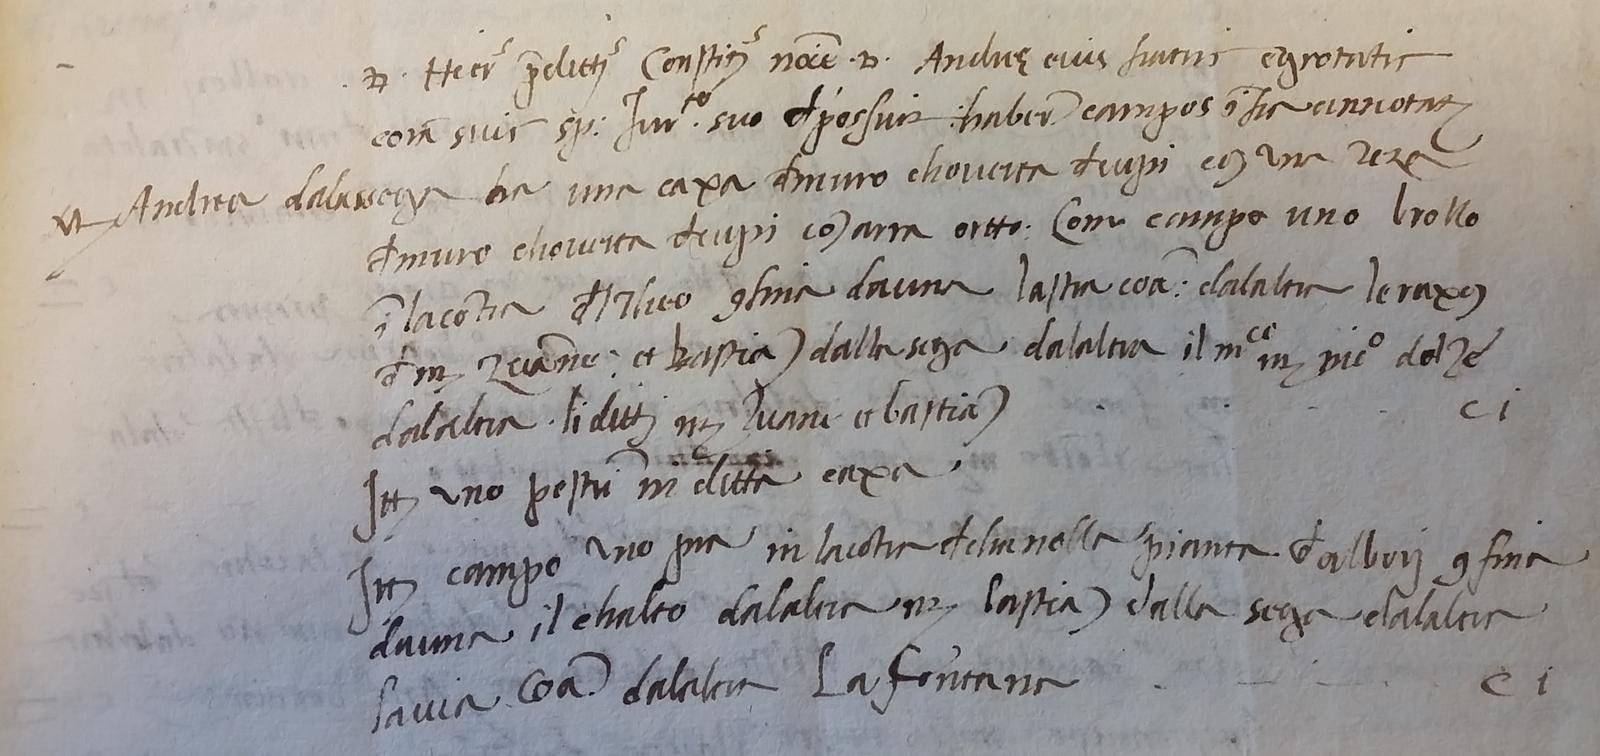 D. Hier.s p̄dittus Constitus noīe D. Andreę eius fratris egrotatis
corā suis sp: Jur.to suo deposuit haberē campos īfra annotatos
Andrea dalla sega ha una caxa de muro choverta de cupi con una teza
de muro choverta de cupi con ara orto: Con campo uno brollo
ī la cōtra de confina da una la stra coā: da laltra le raxon
de m. Zuanne: et bastian dalla sega da laltra il m.co m. nic.o dolzē
da laltra li ditti m. Zuane et bastian c i
Itm uno pestrī in ditta caxa
Itm campo uno pra in la cōtra de pianta de albori confina
da una il chalto da laltra m. bastian dalla sega da laltra
la via Coā. da laltra La fontana c i